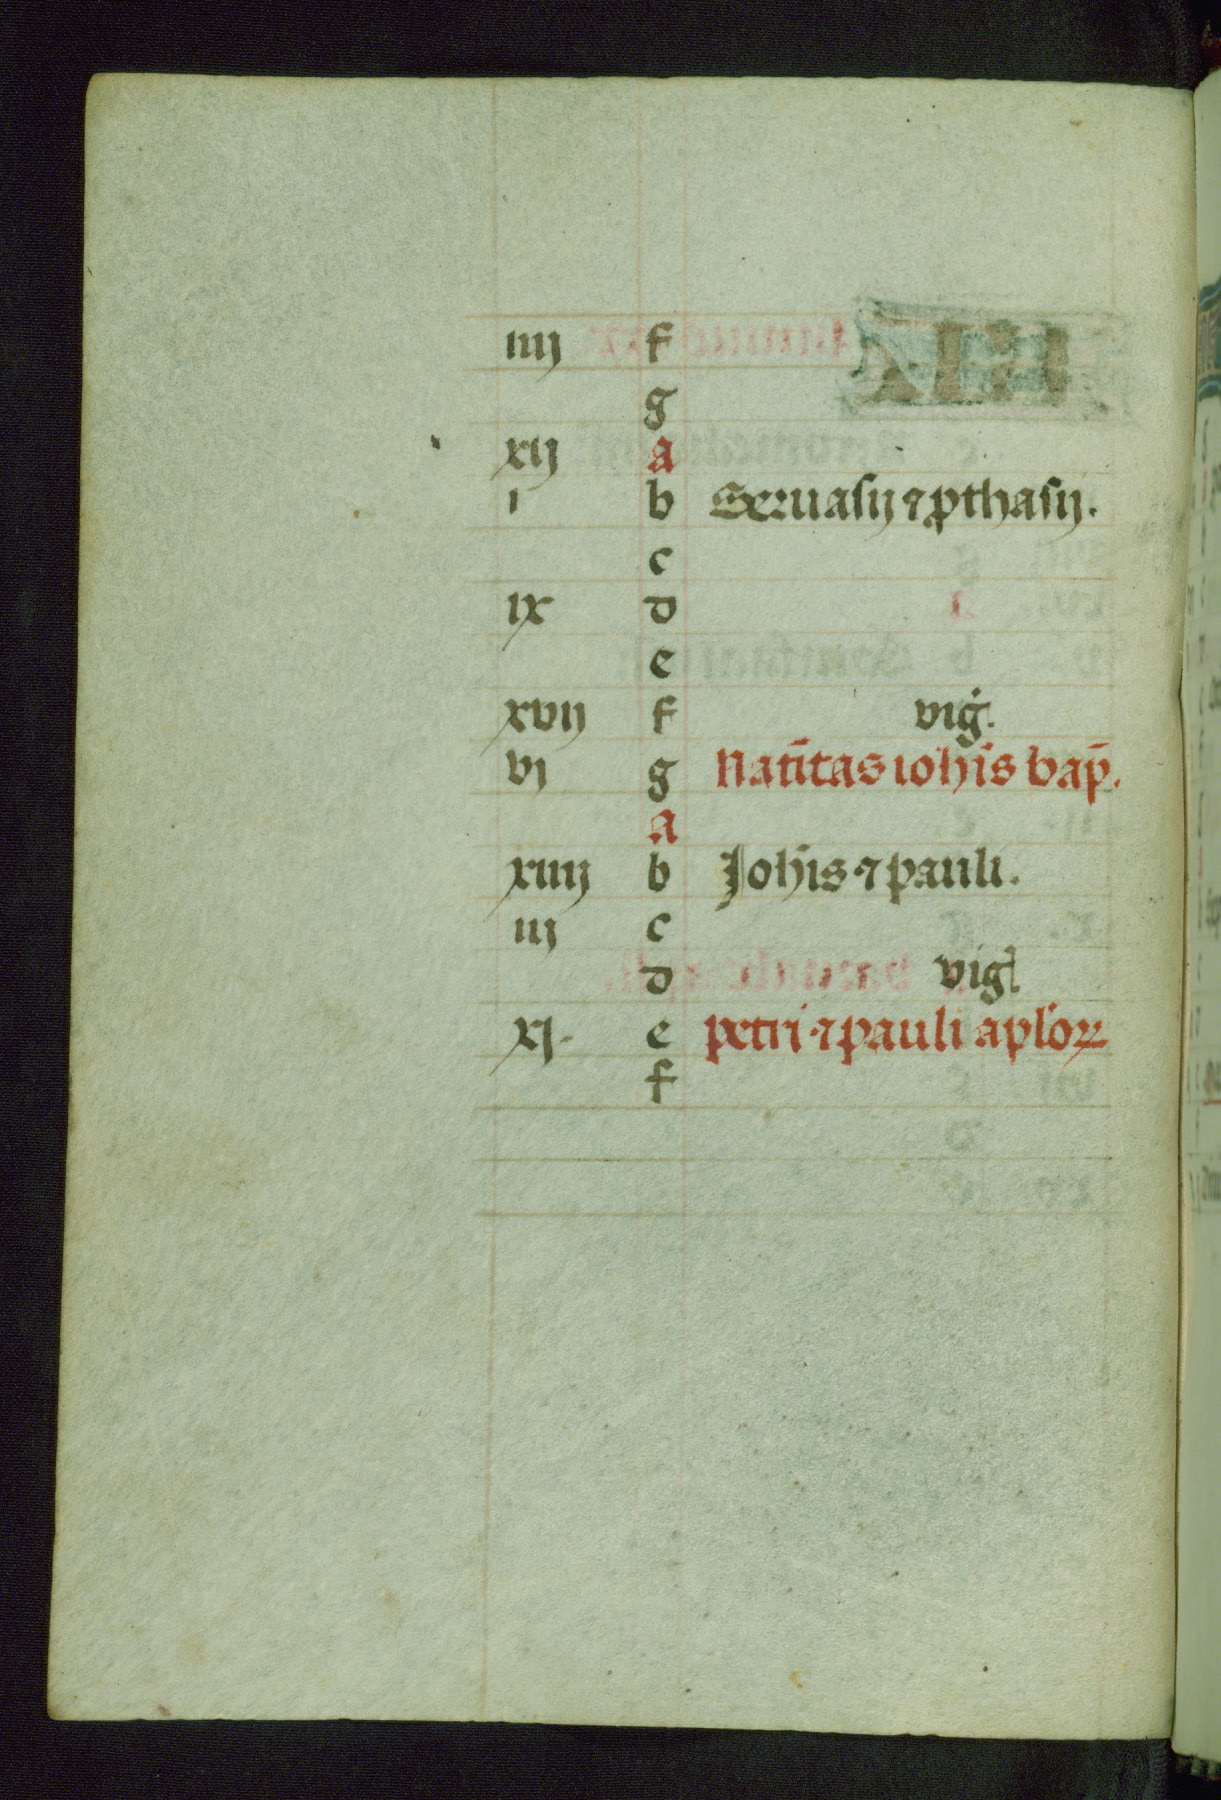 iiij f
g
xij a
i b Seruasij ⁊ ꝓthasij.
c
ix d
e
xvij f vig.
vj g Natītas ioh̄is bap̄.
a
xiiij b Joh̄is ⁊ pauli.
iij c
d vigl
xj. e petri ⁊ pauli apl̄oꝝ
f